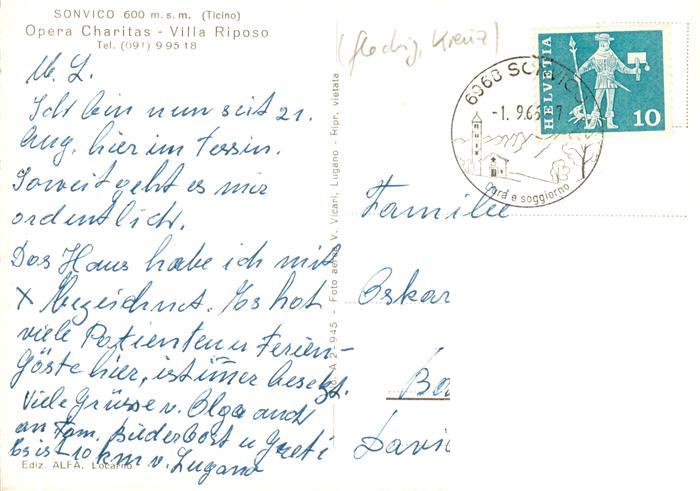 SONVICO 600 m. s. m. (Ticino)
Opera Charitas - Villa Riposo
Tel. (091) 9 95 18
M. L.
Ich bin nun seit 21.
Aug. hier im Tessin.
Soweit geht es mir
ordentlich.
Das Haus habe ich mit
X bezeichnet. Es hat
viele Patienten u Ferien-
gäste hier, ist immer besetzt.
Viele Grüsse v. Olga auch
an Fam. Büderbost u Greti
es ist 10 km v. Lugano
Ediz. ALFA, Locarno
A 2-945 - Foto aerea V. Vicari, Lugano - Ripr. vietata
Kreuz)
6968 SONVICO
-1. 9.65
Cura e soggiorno
HELVETIA
10
Familie
Oskar